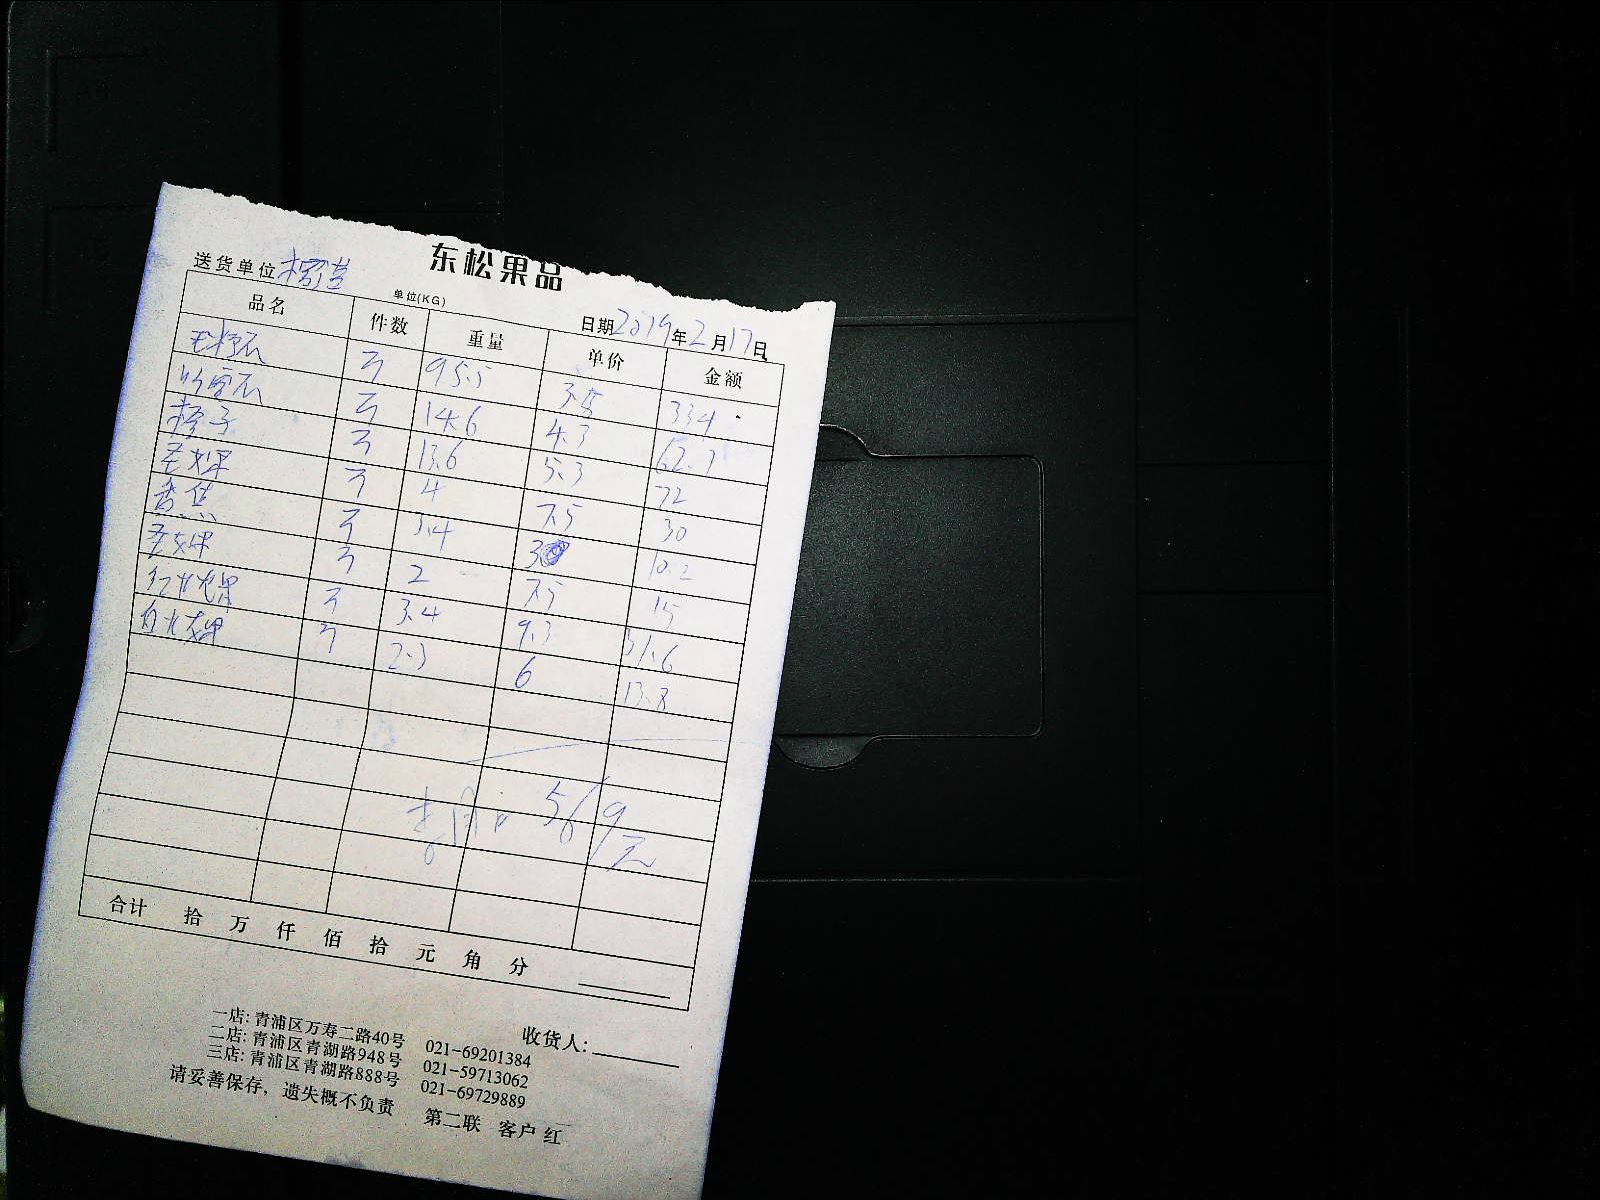 东松果品
送货单位
单位(KG)
日期2019年2月17日
品名 件数 重量 单价 金额
95.5 3.5 334
14.6 4.3 62.7
橙子 13.6 5.3 72
圣女果 4 7.5 30
香蕉 3.4 3 10.2
圣女果 2 7.5 15
红火龙果 3.4 9.3 31.6
白火龙果 2.3 6 13.8
569元
合计 拾 万 仟 佰 拾 元 角 分
收货人:
一店: 青浦区万寿二路40号 021-69201384
二店: 青浦区青湖路948号 021-59713062
三店: 青浦区青湖路888号 021-69729889
请妥善保存，遗失概不负责 第二联 客户 红